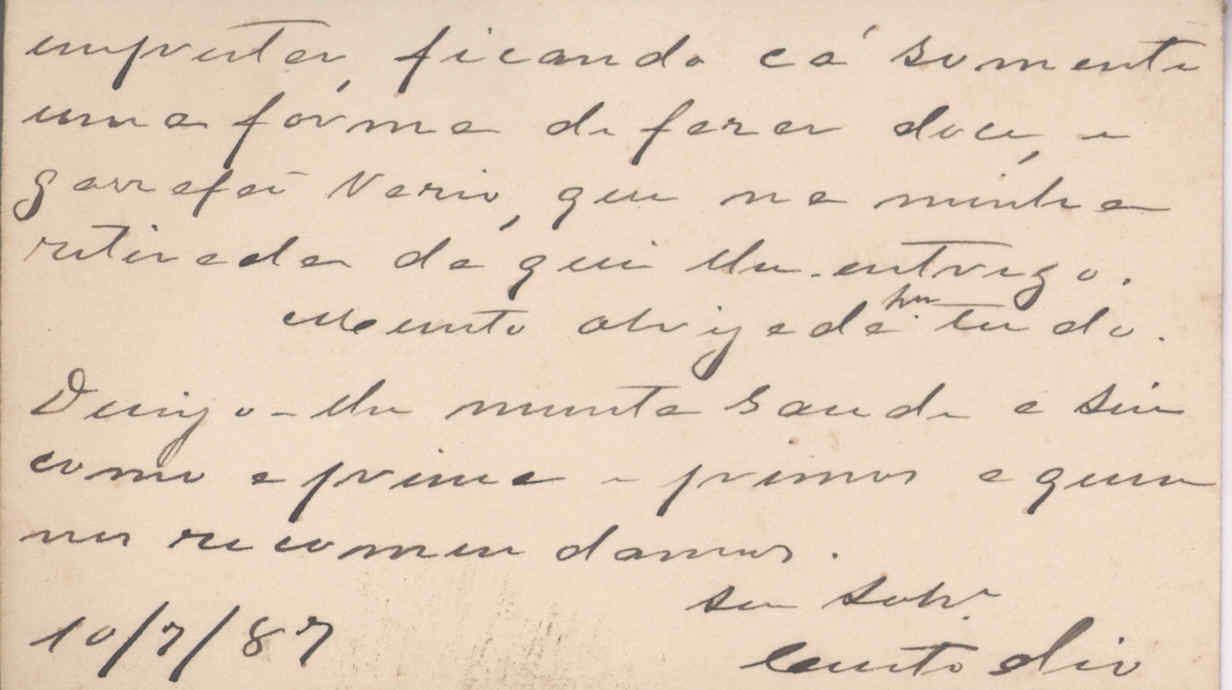 emprestar, ficando cá somente
uma fórma de fazer doce, e
garrafão vazio, que na minha
retirada da qui lhe entrego.
Muito obrigado por tudo.
Desejo-lhe muita saude a si
como a prima e primos a quem
nos recomendamos.
seu sobr.º
Custodio
10/7/87